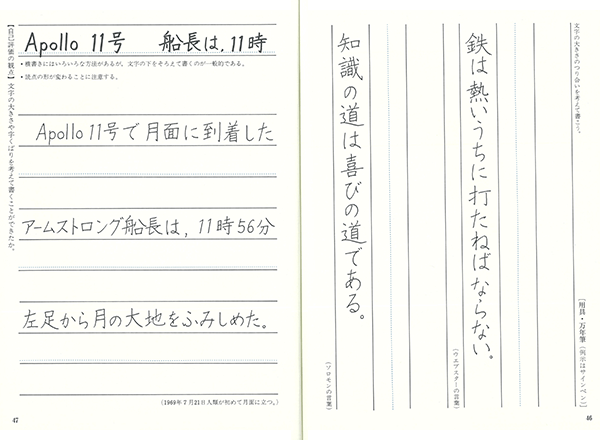 文字の大きさのつり合いを考えて書こう。
[用具・万年筆(例示はサインペン)]
鉄は熱いうちに打たねばならない。
(ウエブスターの言葉)
知識の道は喜びの道である。
(ソロモンの言葉)
46
Apollo 11号 船長は,11時
・横書きにはいろいろな方法があるが,文字の下をそろえて書くのが一般的である。
・読点の形が変わることに注意する。
【自己評価の観点】文字の大きさや字くばりを考えて書くことができたか。
Apollo 11号で月面に到着した
アームストロング船長は,11時56分
左足から月の大地をふみしめた。
(1969年7月21日人類が初めて月面に立つ。)
47